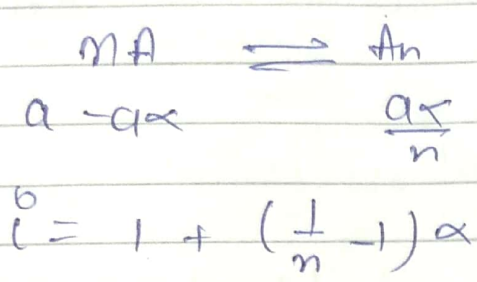 nA ⇌ An
a - aα aα/n
i = 1 + (1/n - 1) α